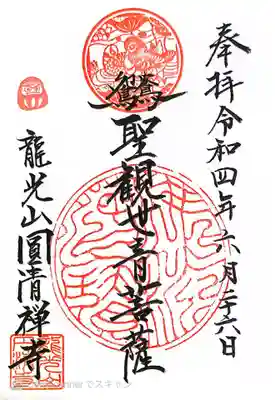 奉拝 令和四年六月二十六日
鴛鴦
聖観世音菩薩
龍光山圓清禅寺
でスキャン